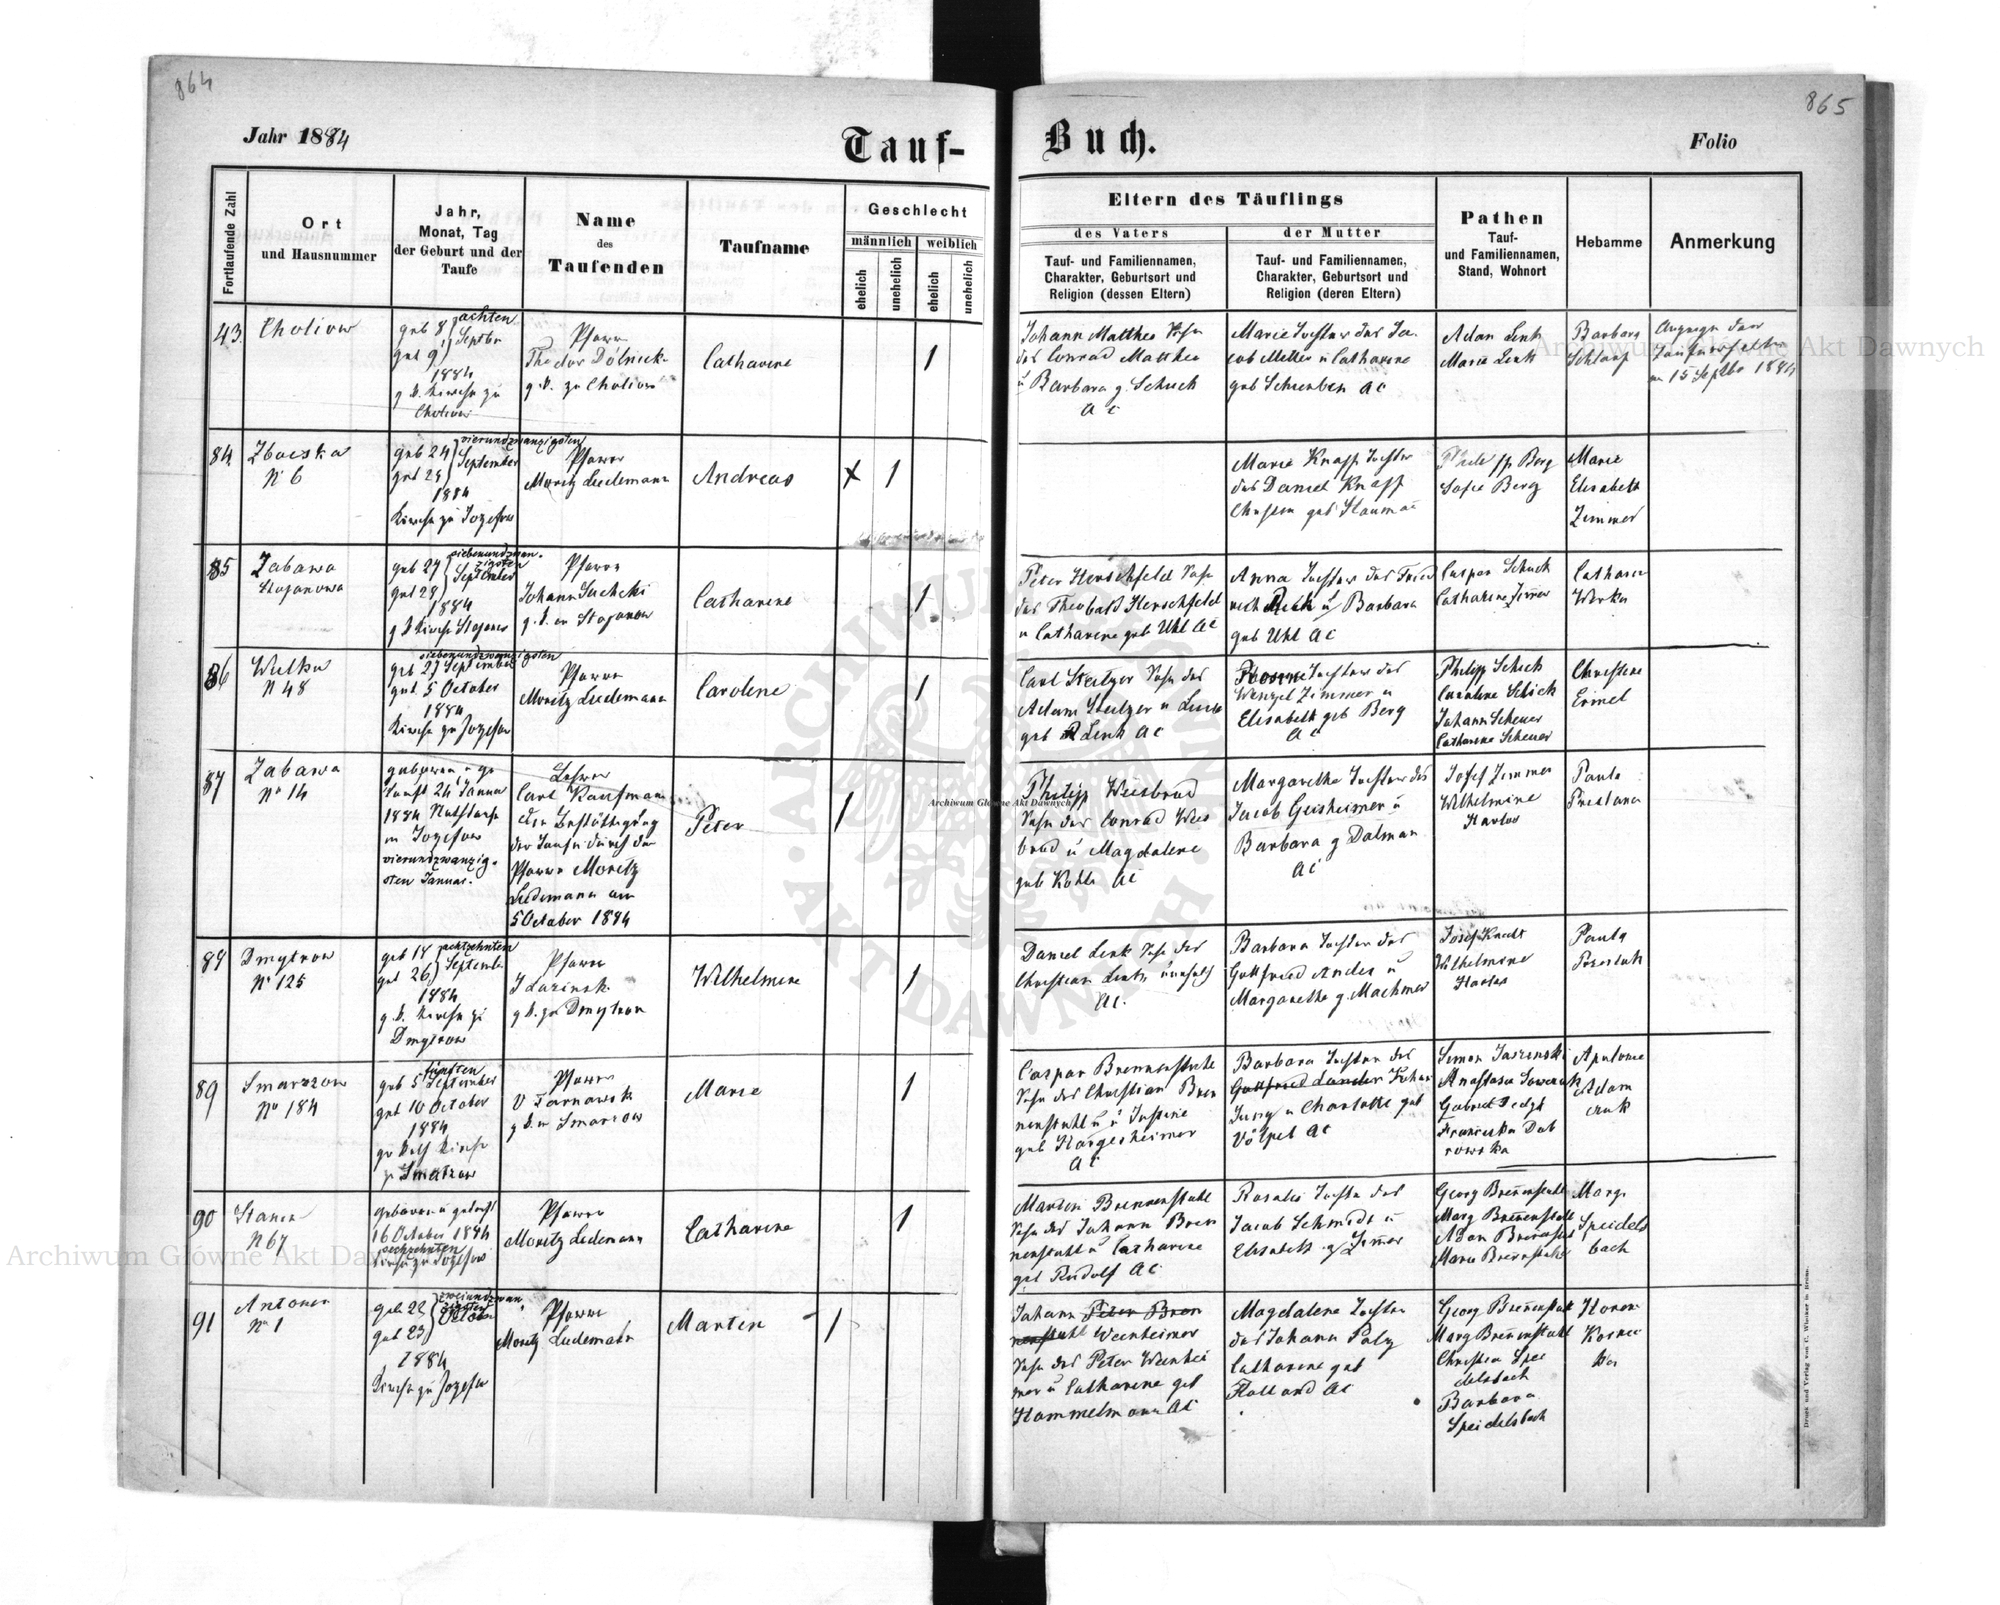 864
865
Jahr 1884
Tauf-
Buch.
Folio
Fortlaufende Zahl
Ort
und Hausnummer
Jahr,
Monat, Tag
der Geburt und der
Taufe
Name
des
Taufenden
Taufname
Geschlecht
männlich
weiblich
ehelich
unehelich
ehelich
unehelich
Eltern des Täuflings
des Vaters
Tauf- und Familiennamen,
Charakter, Geburtsort und
Religion (dessen Eltern)
der Mutter
Tauf- und Familiennamen,
Charakter, Geburtsort und
Religion (deren Eltern)
Pathen
Tauf-
und Familiennamen,
Stand, Wohnort
Hebamme
Anmerkung
Choliow
geb 8 achten
Septbr
get 9
1884
g. k. Kirche zu
Choliow
Pfarrer
g. k. zu Choliow
Catharine
1
Johann Matthes Sohn
des Conrad Matthes
u Barbara g. Schick
A C
Marie Tochter des Ja
cob Metter u Catharine
geb AC
Adam Lenk
Marie Lenk
Barbara
am 15 Septbr 1884
84.
Zboiska
No 6
geb 24 vierundzwanzigsten
September
get 28
1884
Kirche zu Jozefow
Pfarrer
Moritz Luedemann
Andreas
1
Marie Knapp Tochter
des Daniel Knapp
Philipp Berg
Sofie Berg
Marie
Elisabeth
Zimmer
85
Zabawa
Stojanowa
geb 27 siebenundzwan-
zigsten
September
get 28
1884
g k Kirche Stojanow
Pfarrer
Johann Suchcki
g. k. in Stojanow
Catharine
1
Peter Herschfeld Sohn
des Theobald Herschfeld
u Catharine geb Uhl AC
Anna Tochter des Fried
rich u Barbara
geb Uhl AC
Caspar Schick
Catharine Zimmer
Catharin
86
Wulka
N 48
geb 27 September siebenundzwanzigsten
get. 5 October
1884
Kirche zu Jozefow
Pfarrer
Moritz Luedemann
Caroline
1
Carl Stelzer Sohn des
Adam Stelzer u
geb Lenk AC
Tochter des
Wenzel Zimmer u
Elisabeth geb Berg
AC
Philipp Schick
Caroline Schick
Johann Scheuer
Catharina Scheuer
Christine
87
Zabawa
No 14
geboren u ge
tauft 24 Januar
1884 Nothtaufe
in Jozefow
vierundzwanzig-
sten Januar.
Lehrer
Carl Kaufmann
die Bestättigung
der Taufe durch den
Pfarrer Moritz
Luedemann am
5 October 1884
Peter
1
Philipp Weisbrod
Sohn des Conrad Weis
brod u Magdalene
geb Kohl AC
Margarethe Tochter des
Jacob Geisheimer u
Barbara g Dalman
AC
Josef Zimmer
Wilhelmine
Harlos
Paula
Dmytrow
No 125
geb 18 achtzehnten
September
get 26
1884
g. k. Kirche zu
Dmytrow
Pfarrer
g k. zu Dmytrow
Wilhelmine
1
Daniel Lenk Sohn des
Christian Lenk unehelich
AC.
Barbara Tochter des
Gottfried Andes u
Margarethe g. Machmer
Josef Knecht
Wilhelmine
Harlos
Paula
89
Smarzow
No 184
geb 5 September fünften
get 10 October
1884
Kirche
zu Smarzow
Pfarrer
V Tarnawsk
g k. in Smarzow
Marie
1
Caspar Brennenstuhl
Sohn des Christian Bren
nenstuhl u Justine
geb Hargesheimer
AC
Barbara Tochter des
Gottfried Lander Johan
Jung u Charlotte geb
Völpel AC
Simon
Anastasia
Gabriel
Franciska Dab
rowska
Apolonie
Adam
czuk
90
Stanin
N 67
geboren u getauft
16 October 1884
sechzehnten
Kirche zu Jozefow
Pfarrer
Moritz Ludemann
Catharine
1
Martin Brennenstuhl
Sohn des Johann Bren
nenstuhl u Catharine
geb Rudolf AC
Rosalie Tochter des
Jacob Schmidt u
Elisabeth g Zimmer
Georg Brennenstuhl
Marg Brennenstuhl
Adam Brennenstuhl
Marie Brennenstuhl
Marg.
Speidels
bach
91
Antonin
No 1
geb 22 zweiundzwan
zigsten
October
get 23
1884
Kirche zu Jozefow
Pfarrer
Moritz Ludemann
Martin
1
Johann Peter Bren
nenstuhl Weinheimer
Sohn des Peter Weinhei
mer u Catharine geb
Hammelmann AC
Magdalene Tochter
des Johann Palz
Catharine geb
Holland AC
Georg Brennenstuhl
Marg Brennenstuhl
Christian Spei
delsbach
Barbara
Speidelsbach
Druck und Verlag von C. Winiker in Brünn.
Archiwum Główne Akt Dawnych
Archiwum Główne Akt Dawnych
Archiwum Główne Akt Dawnych
ARCHIWUM GŁÓWNE
AKT DAWNYCH